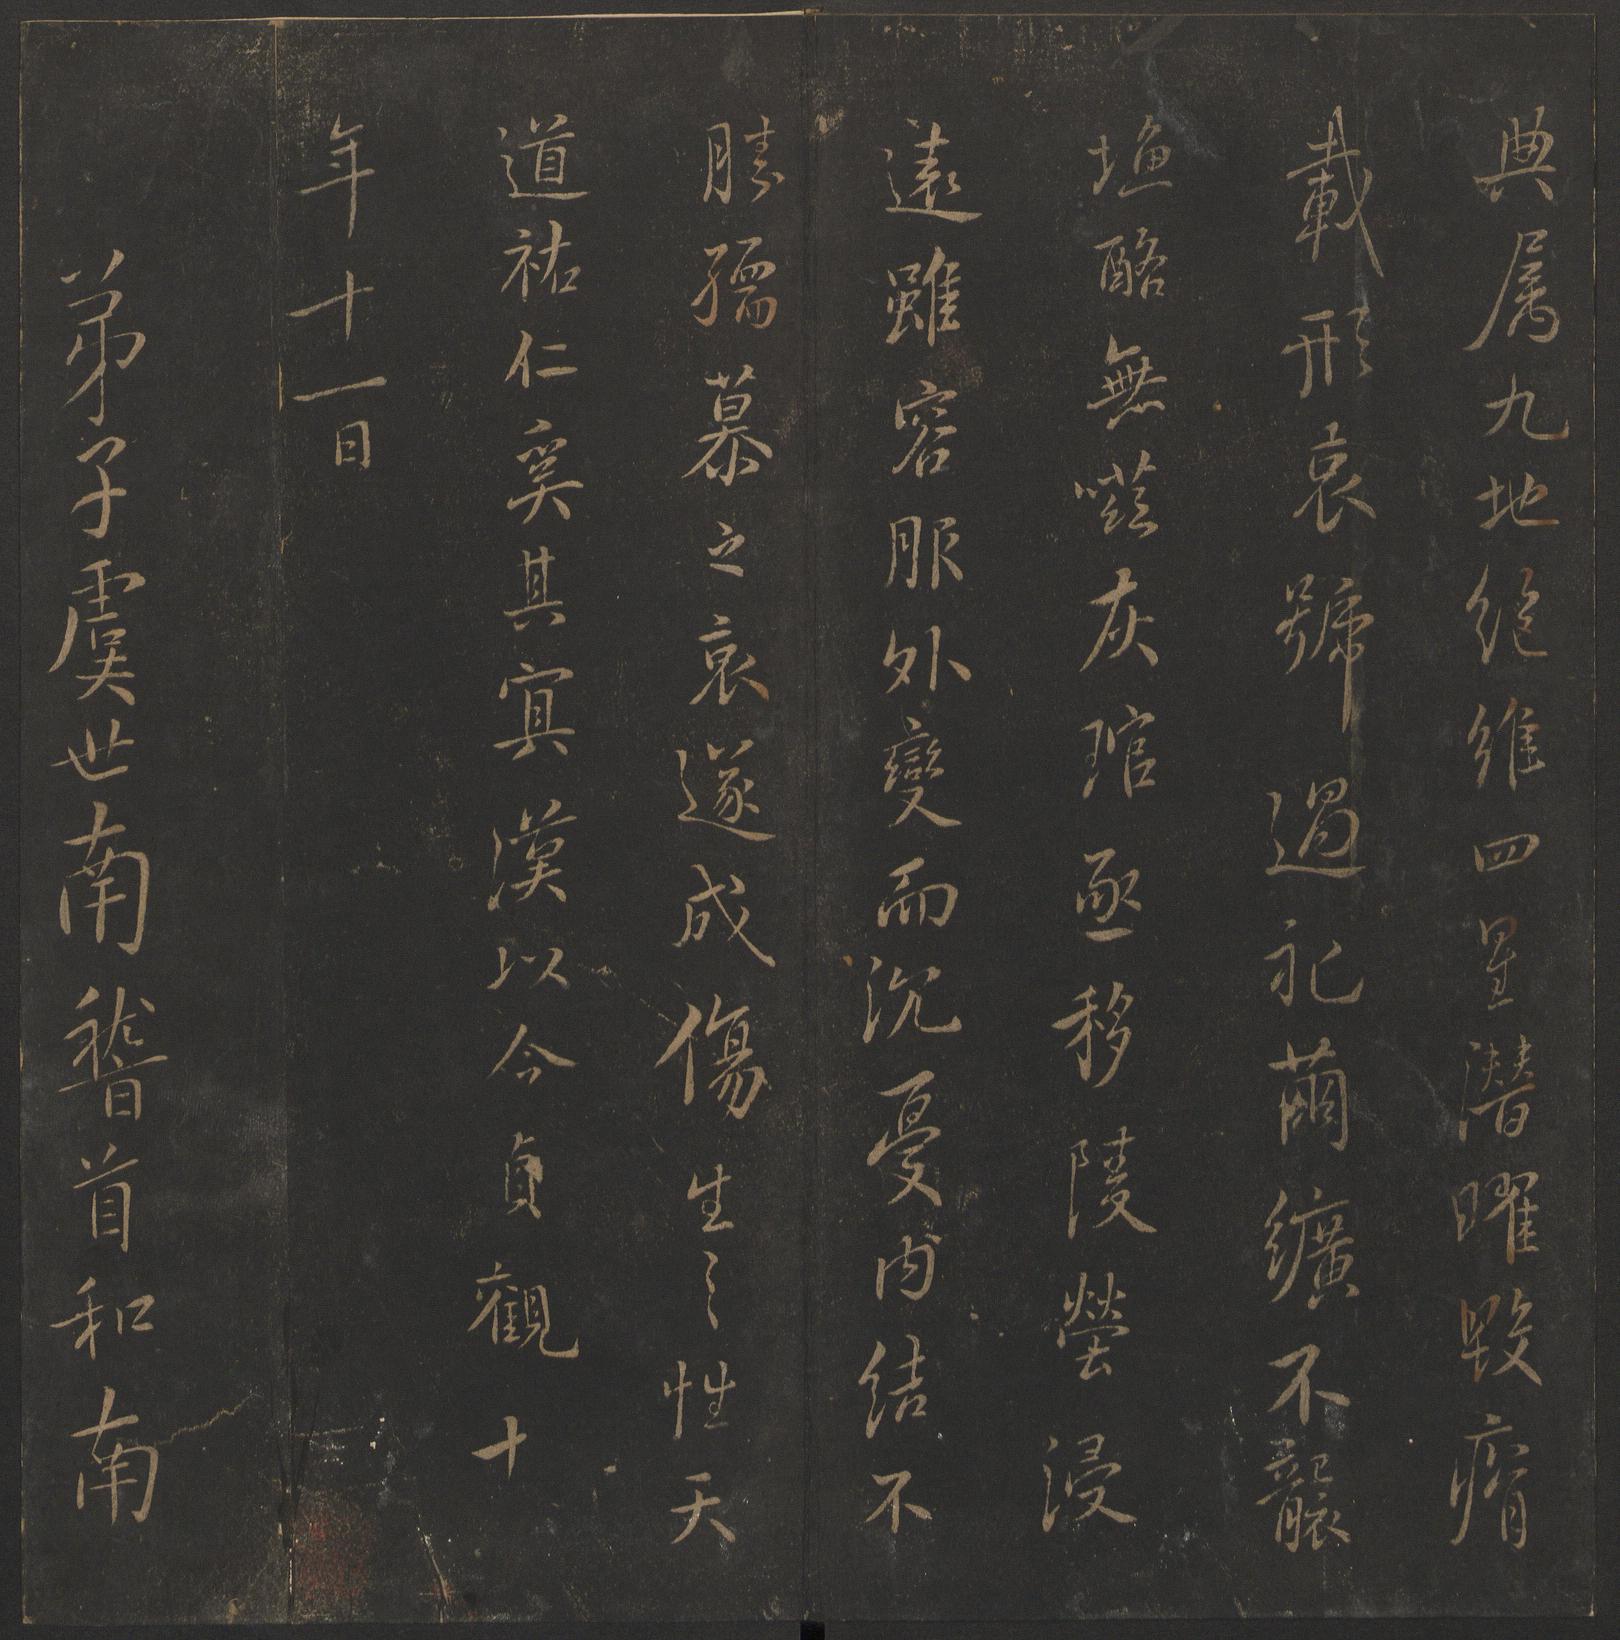 典属九地絶維四星潜曜毀瘠
載形哀號過祀繭纊不襲
塩酪無嗞灰琯亟移陵塋浸
遠雖容服外變而沉憂内結不
勝孺慕之哀遂成傷生之性天
道祐仁奚其冥漠以今貞觀十
年十一日
弟子虞世南稽首和南